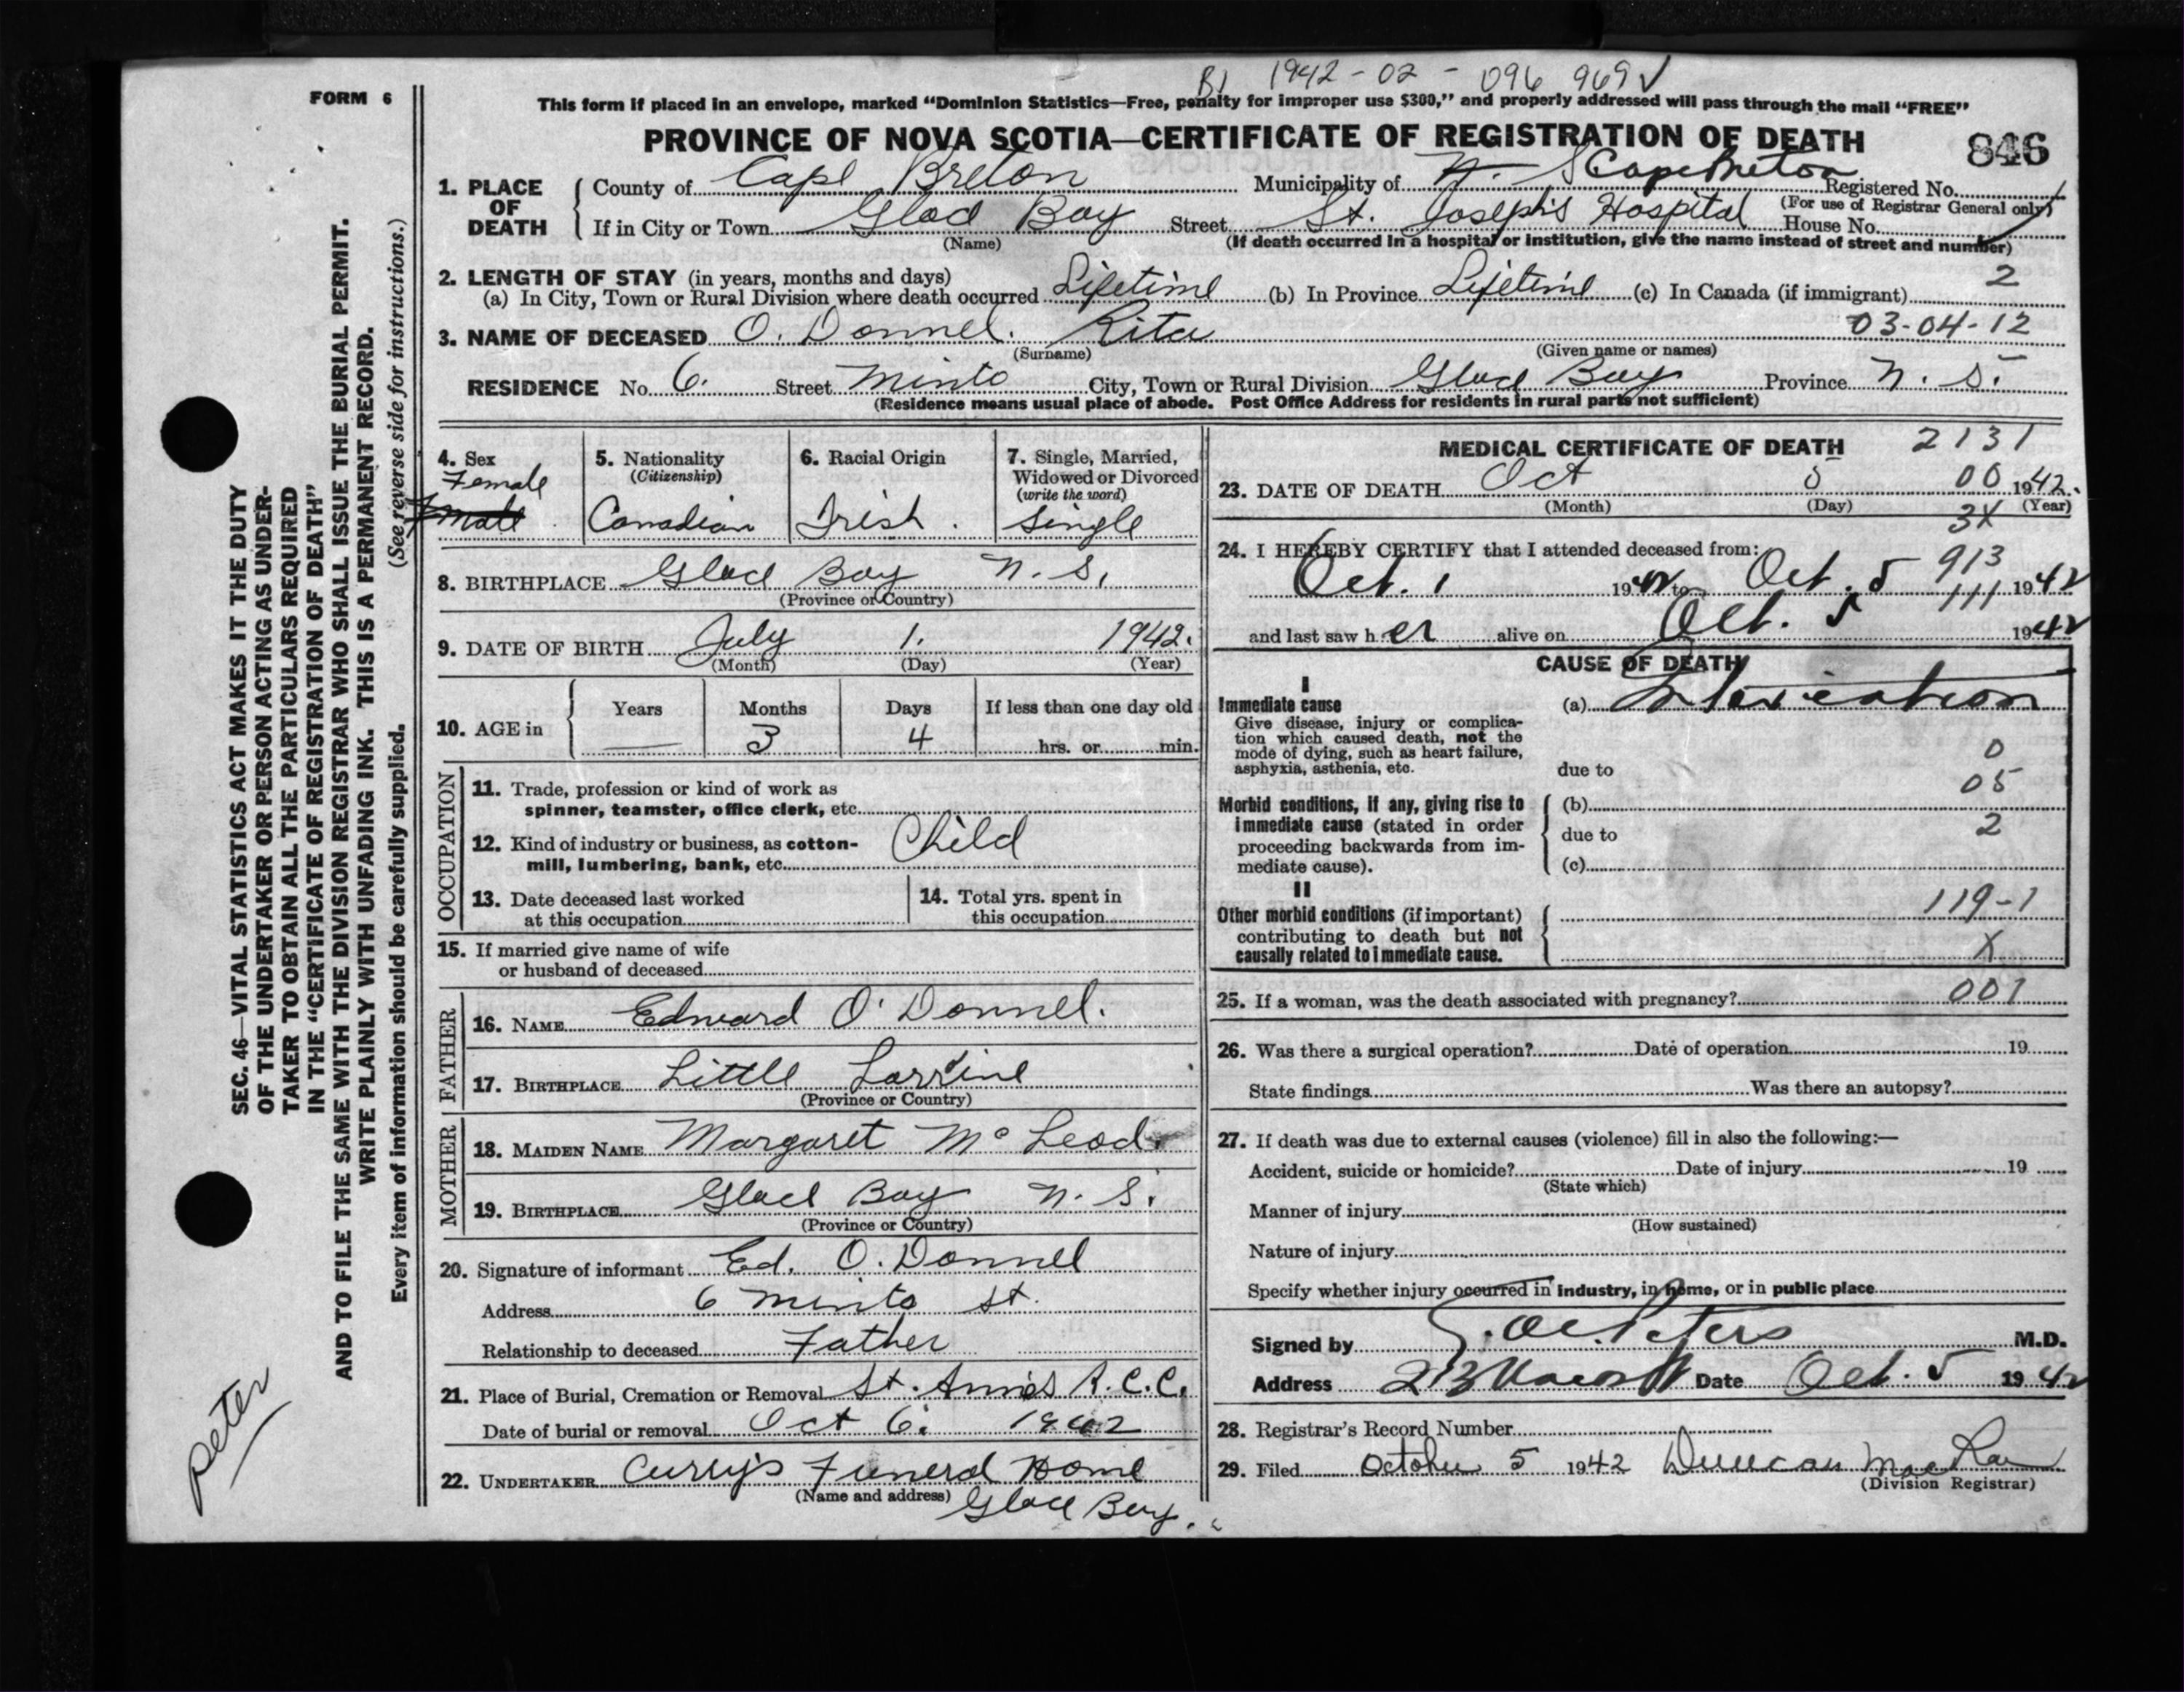 B1 1942-02-096969 ✓
FORM 6
This form if placed in an envelope, marked "Dominion Statistics—Free, penalty for improper use $300," and properly addressed will pass through the mail "FREE"
PROVINCE OF NOVA SCOTIA—CERTIFICATE OF REGISTRATION OF DEATH 846
1. PLACE OF DEATH County of Cape Breton Municipality of N. S Cape Breton Registered No.
(For use of Registrar General only)
If in City or Town Glace Bay Street St. Joseph's Hospital House No.
(Name) (If death occurred in a hospital or institution, give the name instead of street and number)
2. LENGTH OF STAY (in years, months and days) 2
(a) In City, Town or Rural Division where death occurred Lifetime (b) In Province Lifetime (c) In Canada (if immigrant)
3. NAME OF DECEASED O. Donnel. Rita 03-04-12
(Surname) (Given name or names)
RESIDENCE No. 6. Street Minto City, Town or Rural Division Glace Bay Province N. S.
(Residence means usual place of abode. Post Office Address for residents in rural parts not sufficient)
4. Sex Female Male
5. Nationality (Citizenship) Canadian
6. Racial Origin Irish.
7. Single, Married, Widowed or Divorced (write the word) Single
8. BIRTHPLACE Glace Bay N. S.
(Province or Country)
9. DATE OF BIRTH July 1. 1942.
(Month) (Day) (Year)
10. AGE in Years — Months 3 Days 4 If less than one day old
hrs. or min.
OCCUPATION
11. Trade, profession or kind of work as
spinner, teamster, office clerk, etc.
12. Kind of industry or business, as cotton-
mill, lumbering, bank, etc. Child
13. Date deceased last worked
at this occupation
14. Total yrs. spent in
this occupation
15. If married give name of wife
or husband of deceased
FATHER
16. NAME Edward O'Donnel.
17. BIRTHPLACE Little Lorraine
(Province or Country)
MOTHER
18. MAIDEN NAME Margaret McLeod
19. BIRTHPLACE Glace Bay N. S.
(Province or Country)
20. Signature of informant Ed. O. Donnel
Address 6 Minto St.
Relationship to deceased Father
21. Place of Burial, Cremation or Removal St. Anne's R. C. C.
Date of burial or removal Oct 6. 1942
22. UNDERTAKER Curry's Funeral Home
(Name and address) Glace Bay.
MEDICAL CERTIFICATE OF DEATH 2131
23. DATE OF DEATH Oct 5 00 1942.
(Month) (Day) (Year)
3X
24. I HEREBY CERTIFY that I attended deceased from: 913
Oct. 1 1942 to Oct. 5 111 1942
and last saw her alive on Oct. 5 1942
CAUSE OF DEATH
I
Immediate cause (a) Intoxication
Give disease, injury or complica-
tion which caused death, not the
mode of dying, such as heart failure, 0
asphyxia, asthenia, etc. due to
05
Morbid conditions, if any, giving rise to (b)
immediate cause (stated in order due to 2
proceeding backwards from im-
mediate cause). (c)
II
Other morbid conditions (if important) 119-1
contributing to death but not
causally related to immediate cause. X
25. If a woman, was the death associated with pregnancy? 001
26. Was there a surgical operation? Date of operation 19
State findings Was there an autopsy?
27. If death was due to external causes (violence) fill in also the following:—
Accident, suicide or homicide? Date of injury 19
(State which)
Manner of injury
(How sustained)
Nature of injury
Specify whether injury occurred in industry, in home, or in public place
Signed by Peters M.D.
Address Date Oct. 5 1942
28. Registrar's Record Number
29. Filed October 5 1942 Duncan MacRae
(Division Registrar)
SEC. 46—VITAL STATISTICS ACT MAKES IT THE DUTY
OF THE UNDERTAKER OR PERSON ACTING AS UNDER-
TAKER TO OBTAIN ALL THE PARTICULARS REQUIRED
IN THE "CERTIFICATE OF REGISTRATION OF DEATH"
AND TO FILE THE SAME WITH THE DIVISION REGISTRAR WHO SHALL ISSUE THE BURIAL PERMIT.
WRITE PLAINLY WITH UNFADING INK. THIS IS A PERMANENT RECORD.
Every item of information should be carefully supplied. (See reverse side for instructions.)
Peter